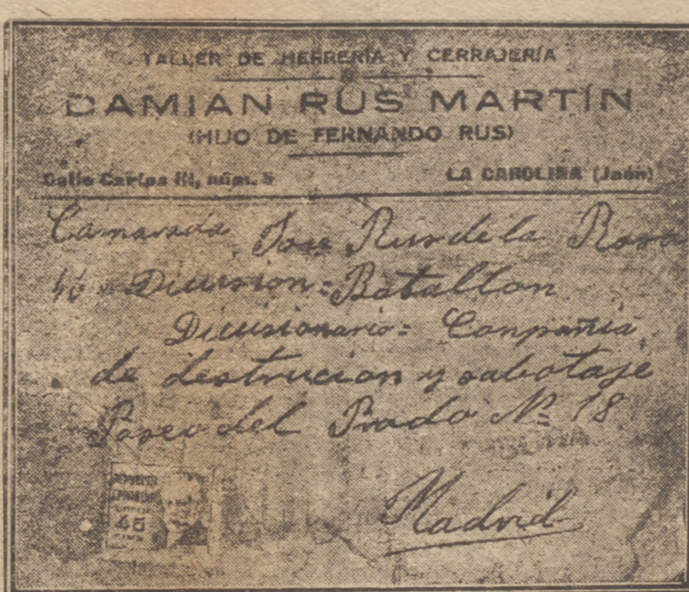 TALLER DE HERRERÍA Y CERRAJERÍA
DAMIAN RUS MARTÍN
(HIJO DE FERNANDO RUS)
Calle Carlos III, núm. 5 LA CAROLINA (Jaén)
Camarada Jose Rus de la Rosa
Division = Batallon
Divisionario = Conpañia
de destrucion y sabotaje
Paseo del Prado Nº 18
Madrid
45